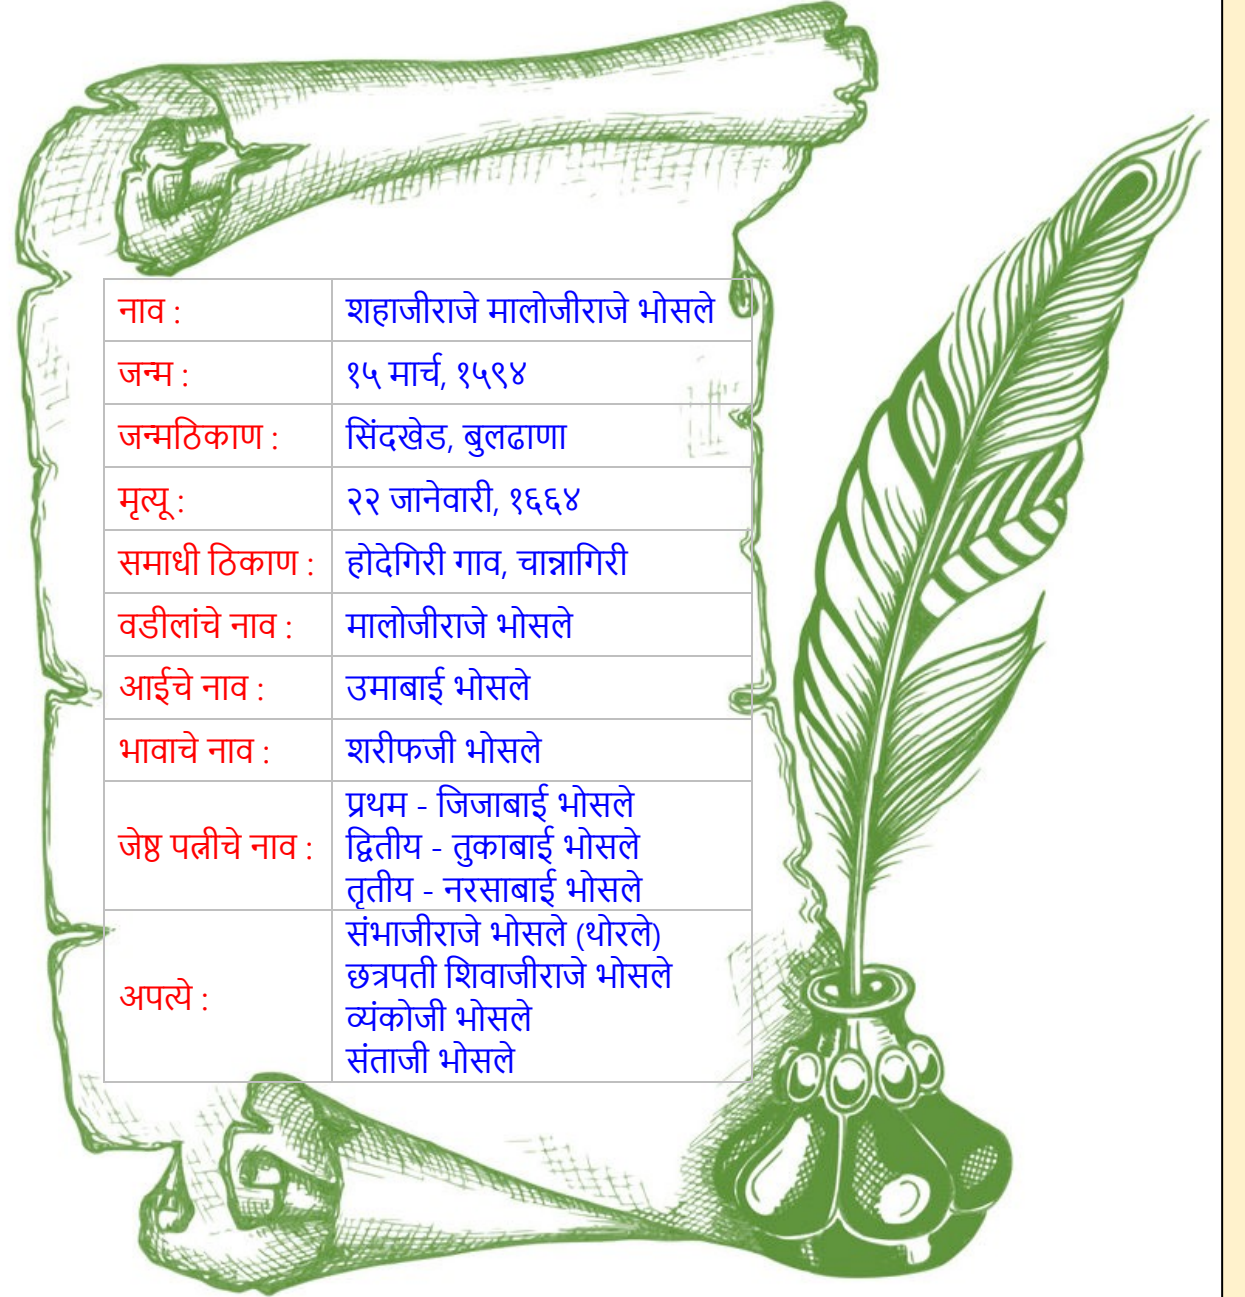 नाव : शहाजीराजे मालोजीराजे भोसले
जन्म : १५ मार्च, १५९४
जन्मठिकाण : सिंदखेड, बुलढाणा
मृत्यू : २२ जानेवारी, १६६४
समाधी ठिकाण : होदेगिरी गाव, चान्नागिरी
वडीलांचे नाव : मालोजीराजे भोसले
आईचे नाव : उमाबाई भोसले
भावाचे नाव : शरीफजी भोसले
जेष्ठ पत्नीचे नाव : प्रथम - जिजाबाई भोसले
द्वितीय - तुकाबाई भोसले
तृतीय - नरसाबाई भोसले
अपत्ये : संभाजीराजे भोसले (थोरले)
छत्रपती शिवाजीराजे भोसले
व्यंकोजी भोसले
संताजी भोसले